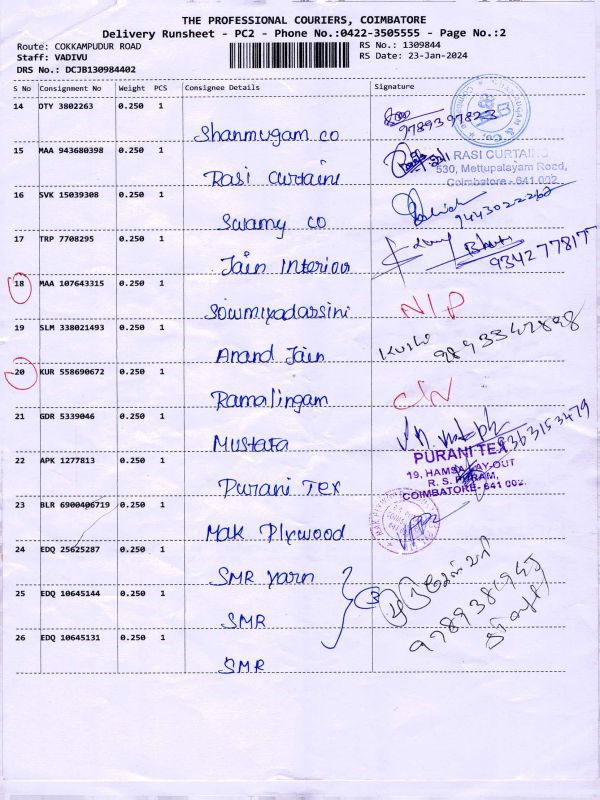 THE PROFESSIONAL COURIERS, COIMBATORE
Delivery Runsheet - PC2 - Phone No.:0422-3505555 - Page No.:2
Route: COKKAMPUDUR ROAD RS No.: 1309844
Staff: VADIVU RS Date: 23-Jan-2024
DRS No.: DCJB130984402
S No Consignment No Weight PCS Consignee Details Signature
14 DTY 3802263 0.250 1
Shanmugam co 9789397823
15 MAA 943680398 0.250 1
RASI CURTAINS
530, Mettupalayam Road,
Coimbatore - 641 002
Rasi Curtains
16 SVK 15039308 0.250 1
Swamy co
17 TRP 7708295 0.250 1
Jain Interior
18 MAA 107643315 0.250 1
Sowmiyadarsini N/P
19 SLM 338021493 0.250 1
Anand Jain
20 KUR 558690672 0.250 1
Ramalingam
21 GDR 5339046 0.250 1
Mustafa 9363153479
22 APK 1277813 0.250 1
PURANI TEX
19, HAMSA LAY-OUT
R. S. PURAM,
COIMBATORE - 641 002.
Purani Tex
23 BLR 6900406719 0.250 1
Mak Plywood
24 EDQ 25625287 0.250 1
SMR Yarn
25 EDQ 10645144 0.250 1
SMR
3
26 EDQ 10645131 0.250 1
SMR